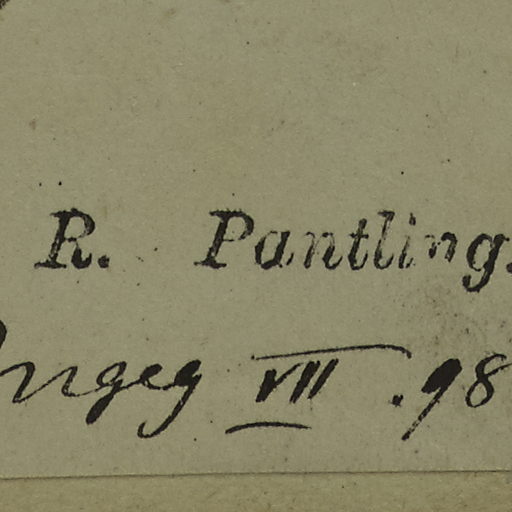 R. Pantling.
Ingeg VII .98